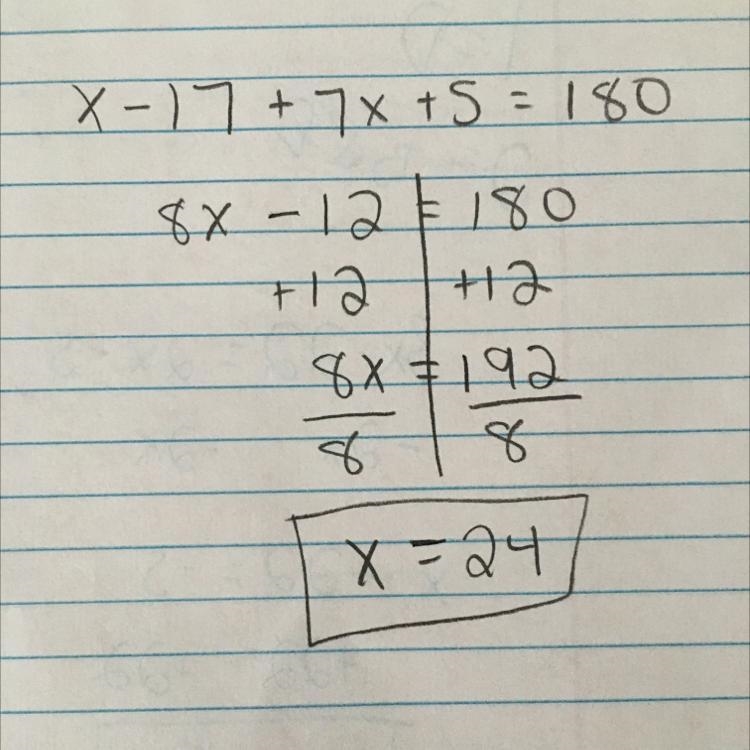 x - 17 + 7x + 5 = 180
8x - 12 = 180
+12 +12
8x = 192
8 8
x = 24